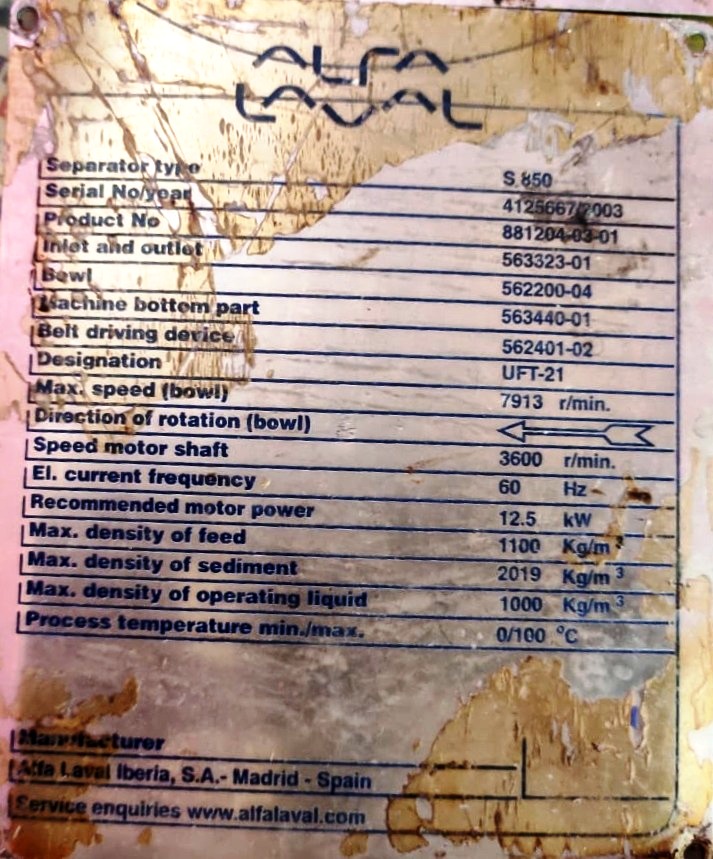 ALFA
LAVAL
Separator type S 850
Serial No/year 4125667/2003
Product No 881204-03-01
Inlet and outlet 563323-01
Bowl 562200-04
Machine bottom part 563440-01
Belt driving device 562401-02
Designation UFT-21
Max. speed (bowl) 7913 r/min.
Direction of rotation (bowl)
Speed motor shaft 3600 r/min.
El. current frequency 60 Hz
Recommended motor power 12.5 kW
Max. density of feed 1100 Kg/m³
Max. density of sediment 2019 Kg/m³
Max. density of operating liquid 1000 Kg/m³
Process temperature min./max. 0/100 °C
Manufacturer
Alfa Laval Iberia, S.A.- Madrid - Spain
Service enquiries www.alfalaval.com